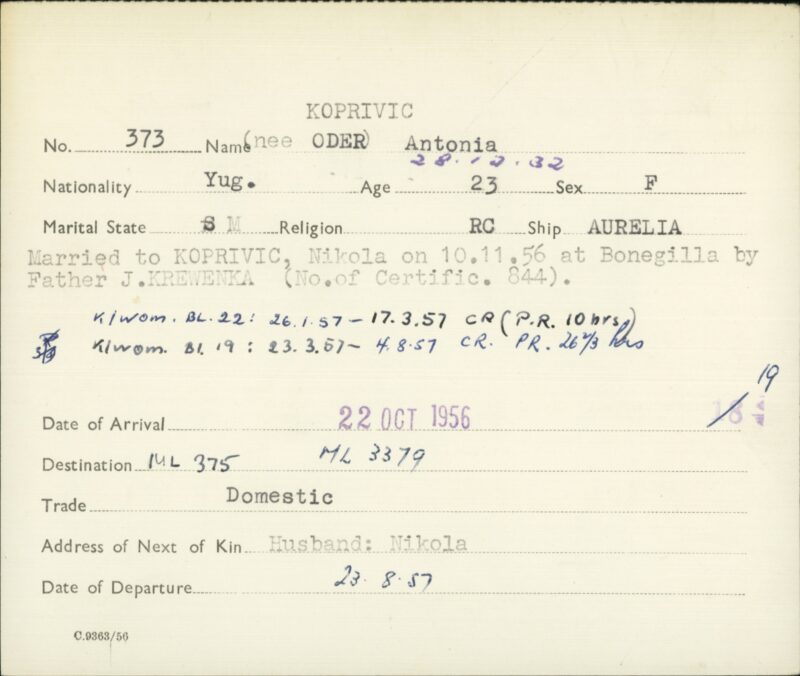 KOPRIVIC
No. 373 Name (nee ODER) Antonia
28.12.32
Nationality Yug. Age 23 Sex F
Marital State S M Religion RC Ship AURELIA
Married to KOPRIVIC, Nikola on 10.11.56 at Bonegilla by
Father J.KREWENKA (No.of Certific. 844).
K/wom. BL. 22: 26.1.57 - 17.3.57 CR (P.R. 10 hrs)
K/wom. Bl. 19 : 23.3.57 - 4.8.57 CR. PR. 26 2/3 hrs
19
Date of Arrival 22 OCT 1956 18
Destination ML 375 ML 3379
Trade Domestic
Address of Next of Kin Husband: Nikola
Date of Departure 23.8.57
C.9363/56